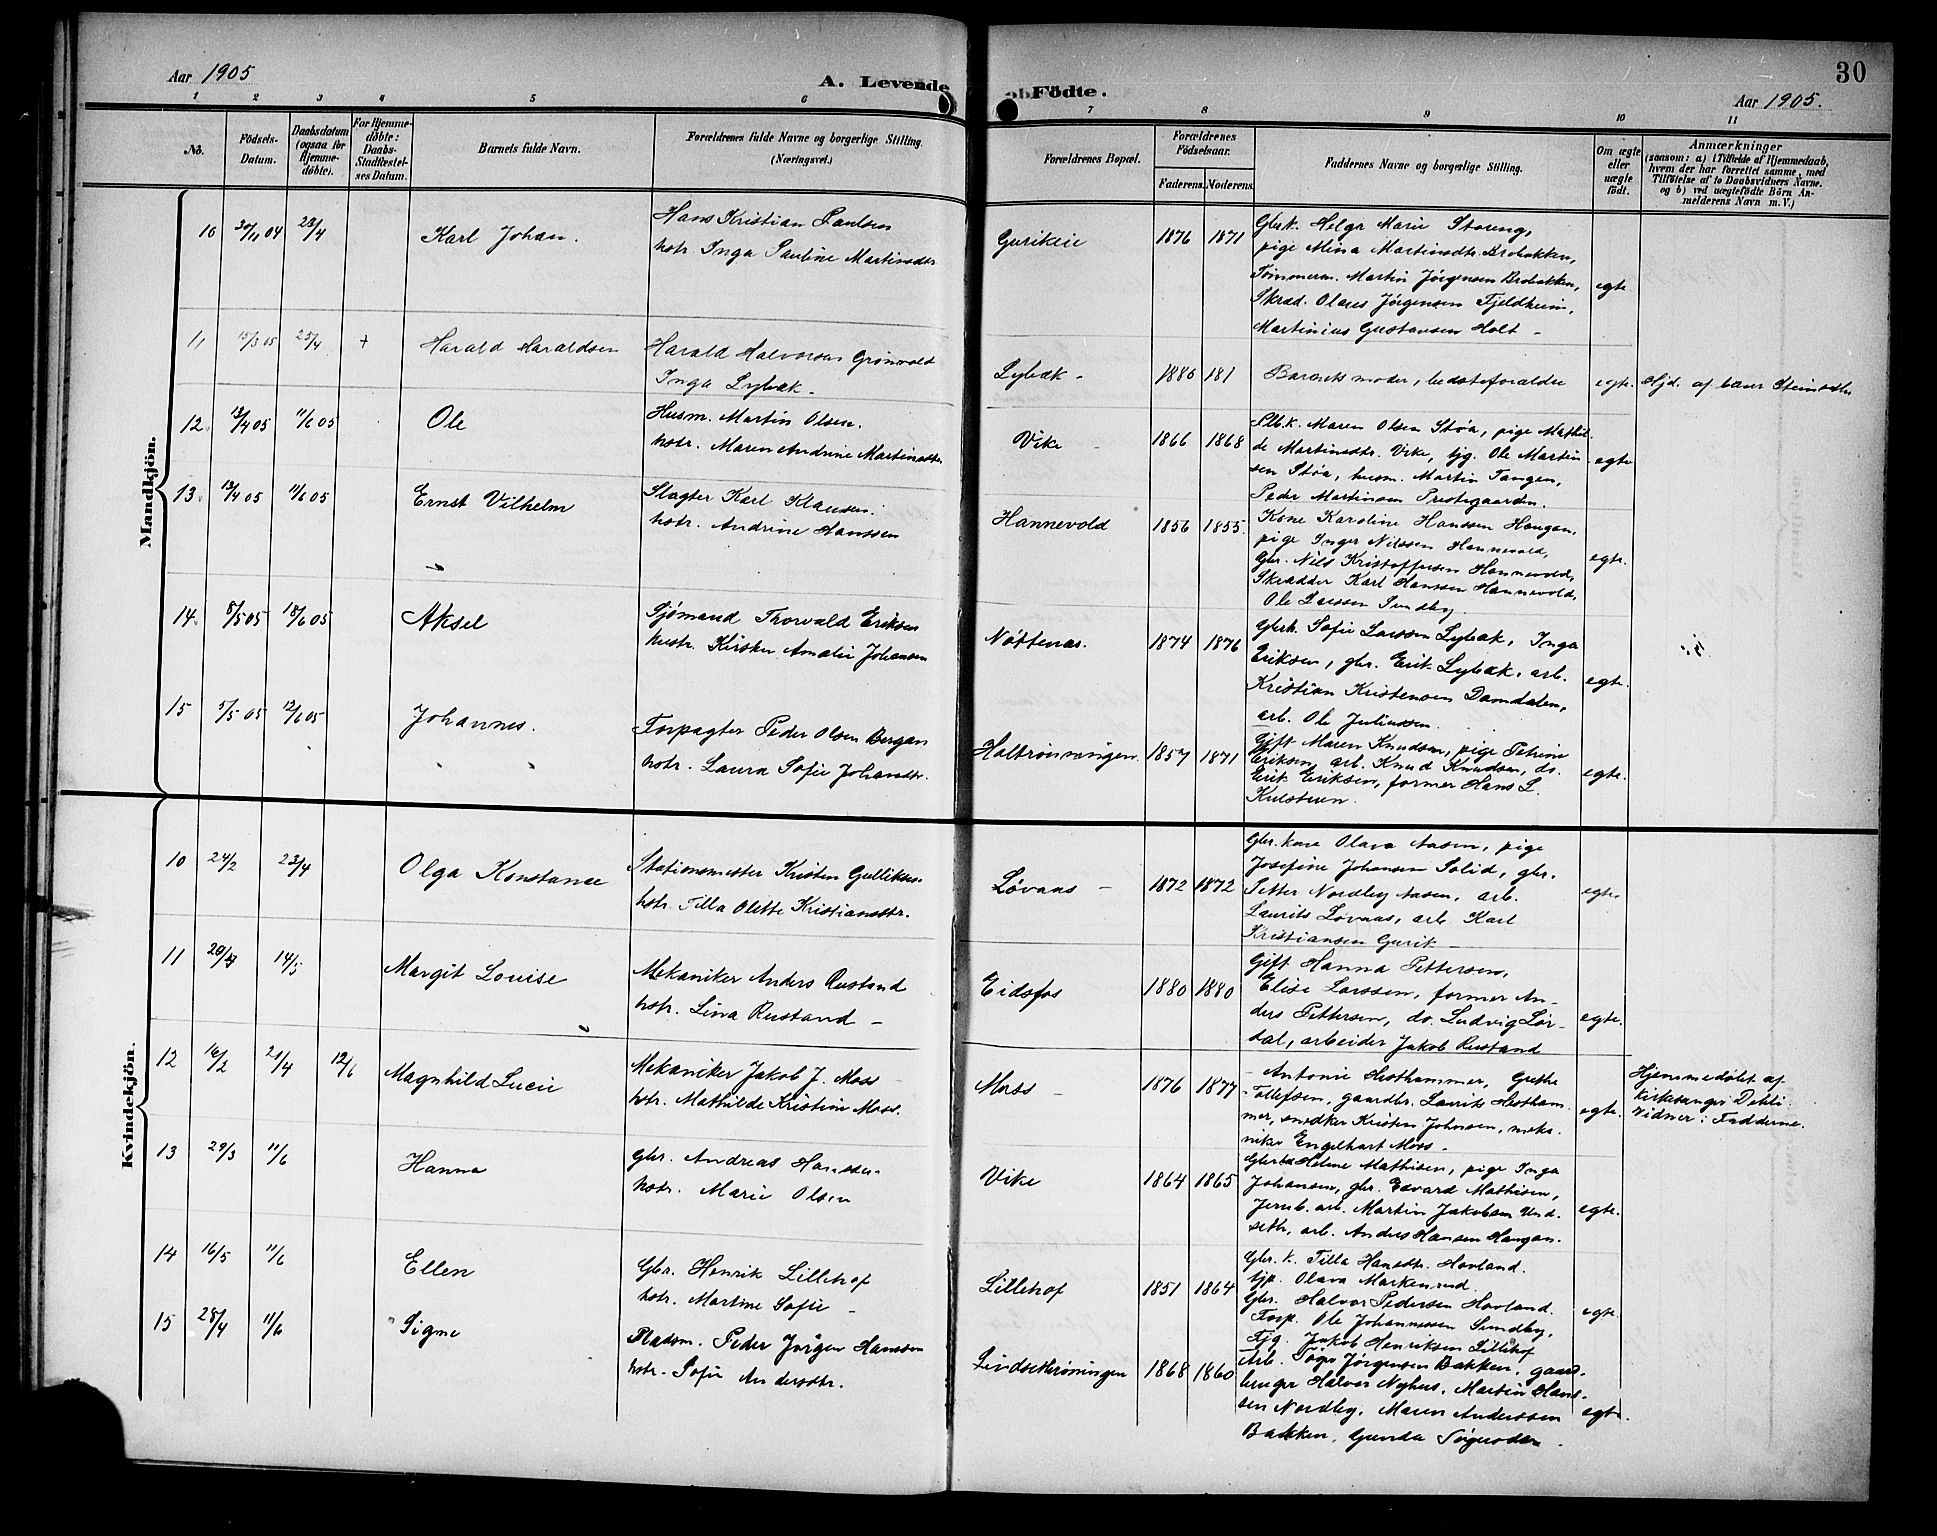 30
Aar 1905
A. Levende Födte.
Aar 1905.
1 2 3 4 5 6 7 8 9 10 11
No.
Födsels-Datum.
Daabsdatum (ogsaa for Hjemme-döbte).
For Hjemme-döbte: Daabs-Stadfæstel-ses Datum.
Barnets fulde Navn.
Forældrenes fulde Navne og borgerlige Stilling. (Næringsvei.)
Forældrenes Bopæl.
Forældrenes Födselsaar.
Faderens. Moderens.
Faddernes Navne og borgerlige Stilling.
Om ægte eller uægte födt.
Anmærkninger
(saasom: a) i Tilfælde af Hjemmedaab,
hvem der har forrettet samme, med
Tilföielse af to Daabsvidners Navne.
og b) ved uægtefödte Börn An-
melderens Navn m. V.)
Mandkjön.
10 30/11 04 23/4 Karl Johan.
Hans Kristian Paulsen
hstr. Inga Pauline Martinsdtr.
Gurikeie 1876 1871
Gbrk. Helga Marie Storeng,
pige Mina Martinsdtr. Brobakken,
Tømmerm. Martin Jörgensen Brobakken,
Skræd. Olaus Jörgensen Fjeldheim,
Martinius Gustavsen Holt -
egte
11 15/3 05 25/4 + Harald Haraldsen
Harald Halvorsen Grönvold
Inga Lybæk -
Lybæk - 1886 181
Barnets moder, bedsteforældre
egte. Hjd. af
12. 13/4 05 11/6 05 Ole
Husm. Martin Olsen.
hstr. Maren Andrine Martinsdtr.
Vike - 1866 1868
Maren Olsen Støa, pige Mathil-
de Martinsdtr. Vike, tjg. Ole Martin
sen Støa, husm. Martin Tangen,
Peder Martinsen Prestegaarden.
egte
13. 13/4 05 11/6 05 Ernst Vilhelm
Slagter Karl Klausen.
hstr. Andrine Hanssen
Hannevold 1856 1855.
Kone Karoline Hanssen Haugan,
pige Inger Nilssen Hannevold,
Gbr. Nils Kristoffersen Hannevold,
Skrædder Karl Hanssen Hannevold,
Ole Larssen Sundby.
egte.
14. 8/5 05 18/6 05 Aksel
Sjömand Thorvald Eriksen
hustr. Kirsten Amalie Johansen
Nøttenæs. 1874 1876
Gbrk. Sofie Larssen Lybæk, Inga
Eriksen, gbr. Erik Lybæk, arb.
Kristian Kristensen Damdalen,
arb. Ole Juliussen.
egte.
15 5/5 05 12/6 05 Johannes.
Forpagter Peder Olsen Bergan
hstr. Laura Sofie Johansdtr.
Holtrønningen. 1857 1871
Gift Maren Knudsen, pige Petrine
Eriksen, arb. Knud Knudsen, do.
Erik Eriksen, former Hans L.
egte.
Kvindekjön.
10 24/2 23/4 Olga Konstance
Stationsmester Kristen Gulliksen
hstr. Tilla Olette Kristiansdtr.
Løvaas - 1872 1872
Gbr. kone Olava Aasen, pige
Josefine Johansen Solid, gbr.
Petter Nordby Aasen, arb.
Laurits Løvaas, arb. Karl
Kristiansen Gurik -
egte.
11 14/5 Margit Louise
Mekaniker Anders Rustand
hstr. Lina Rustand -
Eidsfos 1880 1880
Gift Hanna Pettersen,
Elise Larssen, former An-
ders Pettersen, do. Ludvig Lør-
dal, arbeider Jakob Rustand
egte.
12 16/2 21/4 12/6 Magnhild Lucie
Mekaniker Jakob J. Moss
hstr. Mathilde Kristine Moss.
Moss - 1876 1877
- Antonie Hesthammer, Grethe
Tollefsen, gaardbr. Laurits Hestham-
mer, snedker Kristen Johnsen, meka-
nike Engelhart Moss -
egte.
Hjemmedøbt af
kirkesanger Dehli
Vidner: Fadderne.
13 29/3 11/6 Hanna
Gbr. Andreas Hanssen
hstr. Marie Olsen
Vike 1864 1865
Helene Mathisen, pige Inga
Johansen, gbr. Edvard Mathisen,
Jernb. arb. Martin Jakobsen Und-
seth, arb. Anders Hansen Haugan.
egte.
14 16/5 11/6 Ellen
Gbr. Henrik Lillehof
hstr. Martine Sofie -
Lillehof 1851 1864
Gbr. k. Tilla Hansdtr. Hovland.
tjp. Olava Markenrud
Gbr. Halvor Pedersen Hovland.
Forp. Ole Johannessen Sundby,
Tjg. Jakob Henriksen Lillehof
egte.
15 28/4 11/6 Signe
Pladsm. Peder Jörgen Hanssen
hstr. Sofie Andersdtr.
Lindsetrøningen 1868 1860
Arb. Jörgensen Bakken, gaard-
bruger Halvor Nyhus, Martin Hans-
sen Nordby, Maren Anderssen
Bakken, Gunda
egte.